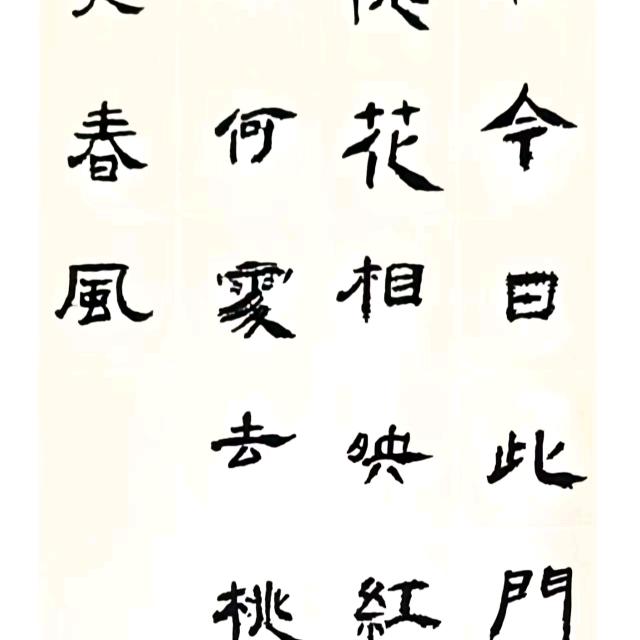 今日此門
花相映紅
何處去桃
春風